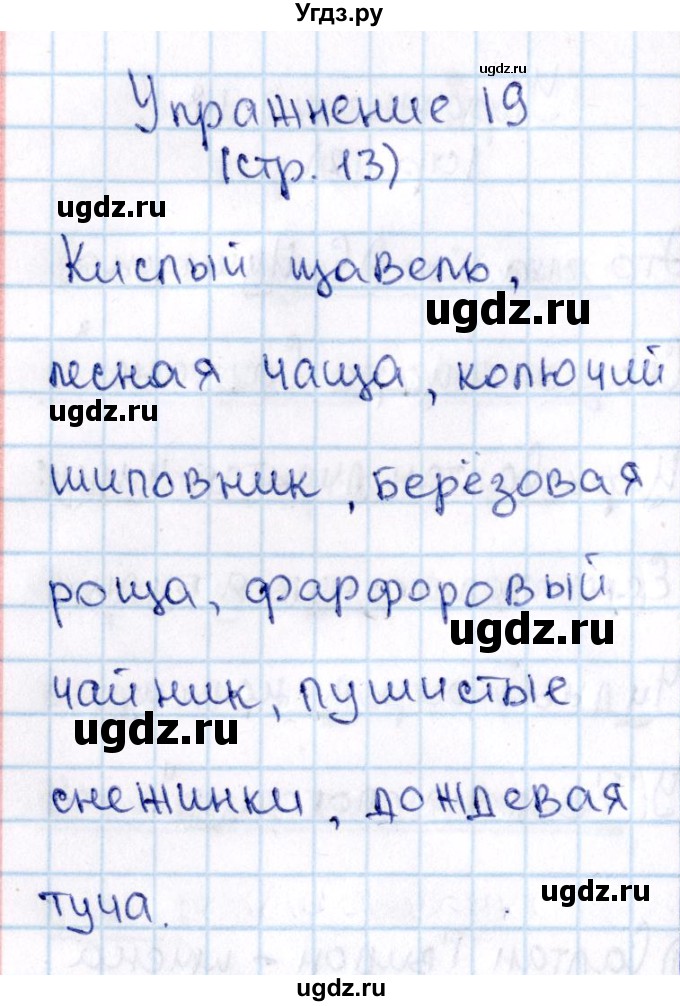 Угдз.ру
ugdz.ru
Упражнение 19
(стр. 13)
ugdz.ru
Кислый щавель,
ugdz.ru
лесная чаща, колючий
ugdz.ru
шиповник, берёзовая
роща, фарфоровый
ugdz.ru
чайник, пушистые
ugdz.ru
снежинки, дождевая
ugdz.ru
туча.
ugdz.ru